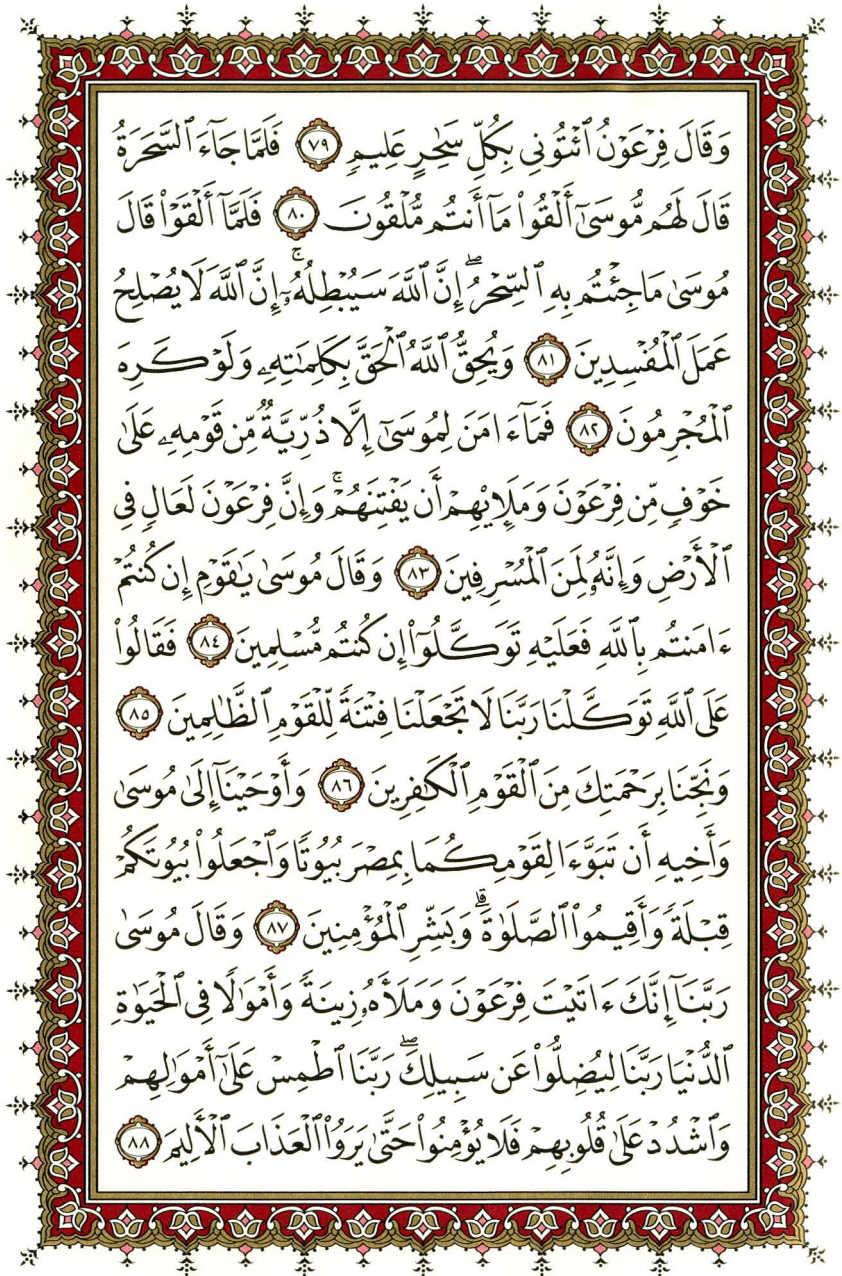 وَقَالَ فِرْعَوْنُ ٱئْتُونِى بِكُلِّ سَٰحِرٍ عَلِيمٍ ٧٩ فَلَمَّا جَآءَ ٱلسَّحَرَةُ
قَالَ لَهُم مُّوسَىٰٓ أَلْقُوا۟ مَآ أَنتُم مُّلْقُونَ ٨٠ فَلَمَّآ أَلْقَوْا۟ قَالَ
مُوسَىٰ مَا جِئْتُم بِهِ ٱلسِّحْرُ ۖ إِنَّ ٱللَّهَ سَيُبْطِلُهُۥٓ ۚ إِنَّ ٱللَّهَ لَا يُصْلِحُ
عَمَلَ ٱلْمُفْسِدِينَ ٨١ وَيُحِقُّ ٱللَّهُ ٱلْحَقَّ بِكَلِمَٰتِهِۦ وَلَوْ كَرِهَ
ٱلْمُجْرِمُونَ ٨٢ فَمَآ ءَامَنَ لِمُوسَىٰٓ إِلَّا ذُرِّيَّةٌ مِّن قَوْمِهِۦ عَلَىٰ
خَوْفٍ مِّن فِرْعَوْنَ وَمَلَإِي۟هِمْ أَن يَفْتِنَهُمْ ۚ وَإِنَّ فِرْعَوْنَ لَعَالٍ فِى
ٱلْأَرْضِ وَإِنَّهُۥ لَمِنَ ٱلْمُسْرِفِينَ ٨٣ وَقَالَ مُوسَىٰ يَٰقَوْمِ إِن كُنتُمْ
ءَامَنتُم بِٱللَّهِ فَعَلَيْهِ تَوَكَّلُوٓا۟ إِن كُنتُم مُّسْلِمِينَ ٨٤ فَقَالُوا۟
عَلَى ٱللَّهِ تَوَكَّلْنَا رَبَّنَا لَا تَجْعَلْنَا فِتْنَةً لِّلْقَوْمِ ٱلظَّٰلِمِينَ ٨٥
وَنَجِّنَا بِرَحْمَتِكَ مِنَ ٱلْقَوْمِ ٱلْكَٰفِرِينَ ٨٦ وَأَوْحَيْنَآ إِلَىٰ مُوسَىٰ
وَأَخِيهِ أَن تَبَوَّءَا لِقَوْمِكُمَا بِمِصْرَ بُيُوتًا وَٱجْعَلُوا۟ بُيُوتَكُمْ
قِبْلَةً وَأَقِيمُوا۟ ٱلصَّلَوٰةَ ۗ وَبَشِّرِ ٱلْمُؤْمِنِينَ ٨٧ وَقَالَ مُوسَىٰ
رَبَّنَآ إِنَّكَ ءَاتَيْتَ فِرْعَوْنَ وَمَلَأَهُۥ زِينَةً وَأَمْوَٰلًا فِى ٱلْحَيَوٰةِ
ٱلدُّنْيَا رَبَّنَا لِيُضِلُّوا۟ عَن سَبِيلِكَ ۖ رَبَّنَا ٱطْمِسْ عَلَىٰٓ أَمْوَٰلِهِمْ
وَٱشْدُدْ عَلَىٰ قُلُوبِهِمْ فَلَا يُؤْمِنُوا۟ حَتَّىٰ يَرَوُا۟ ٱلْعَذَابَ ٱلْأَلِيمَ ٨٨